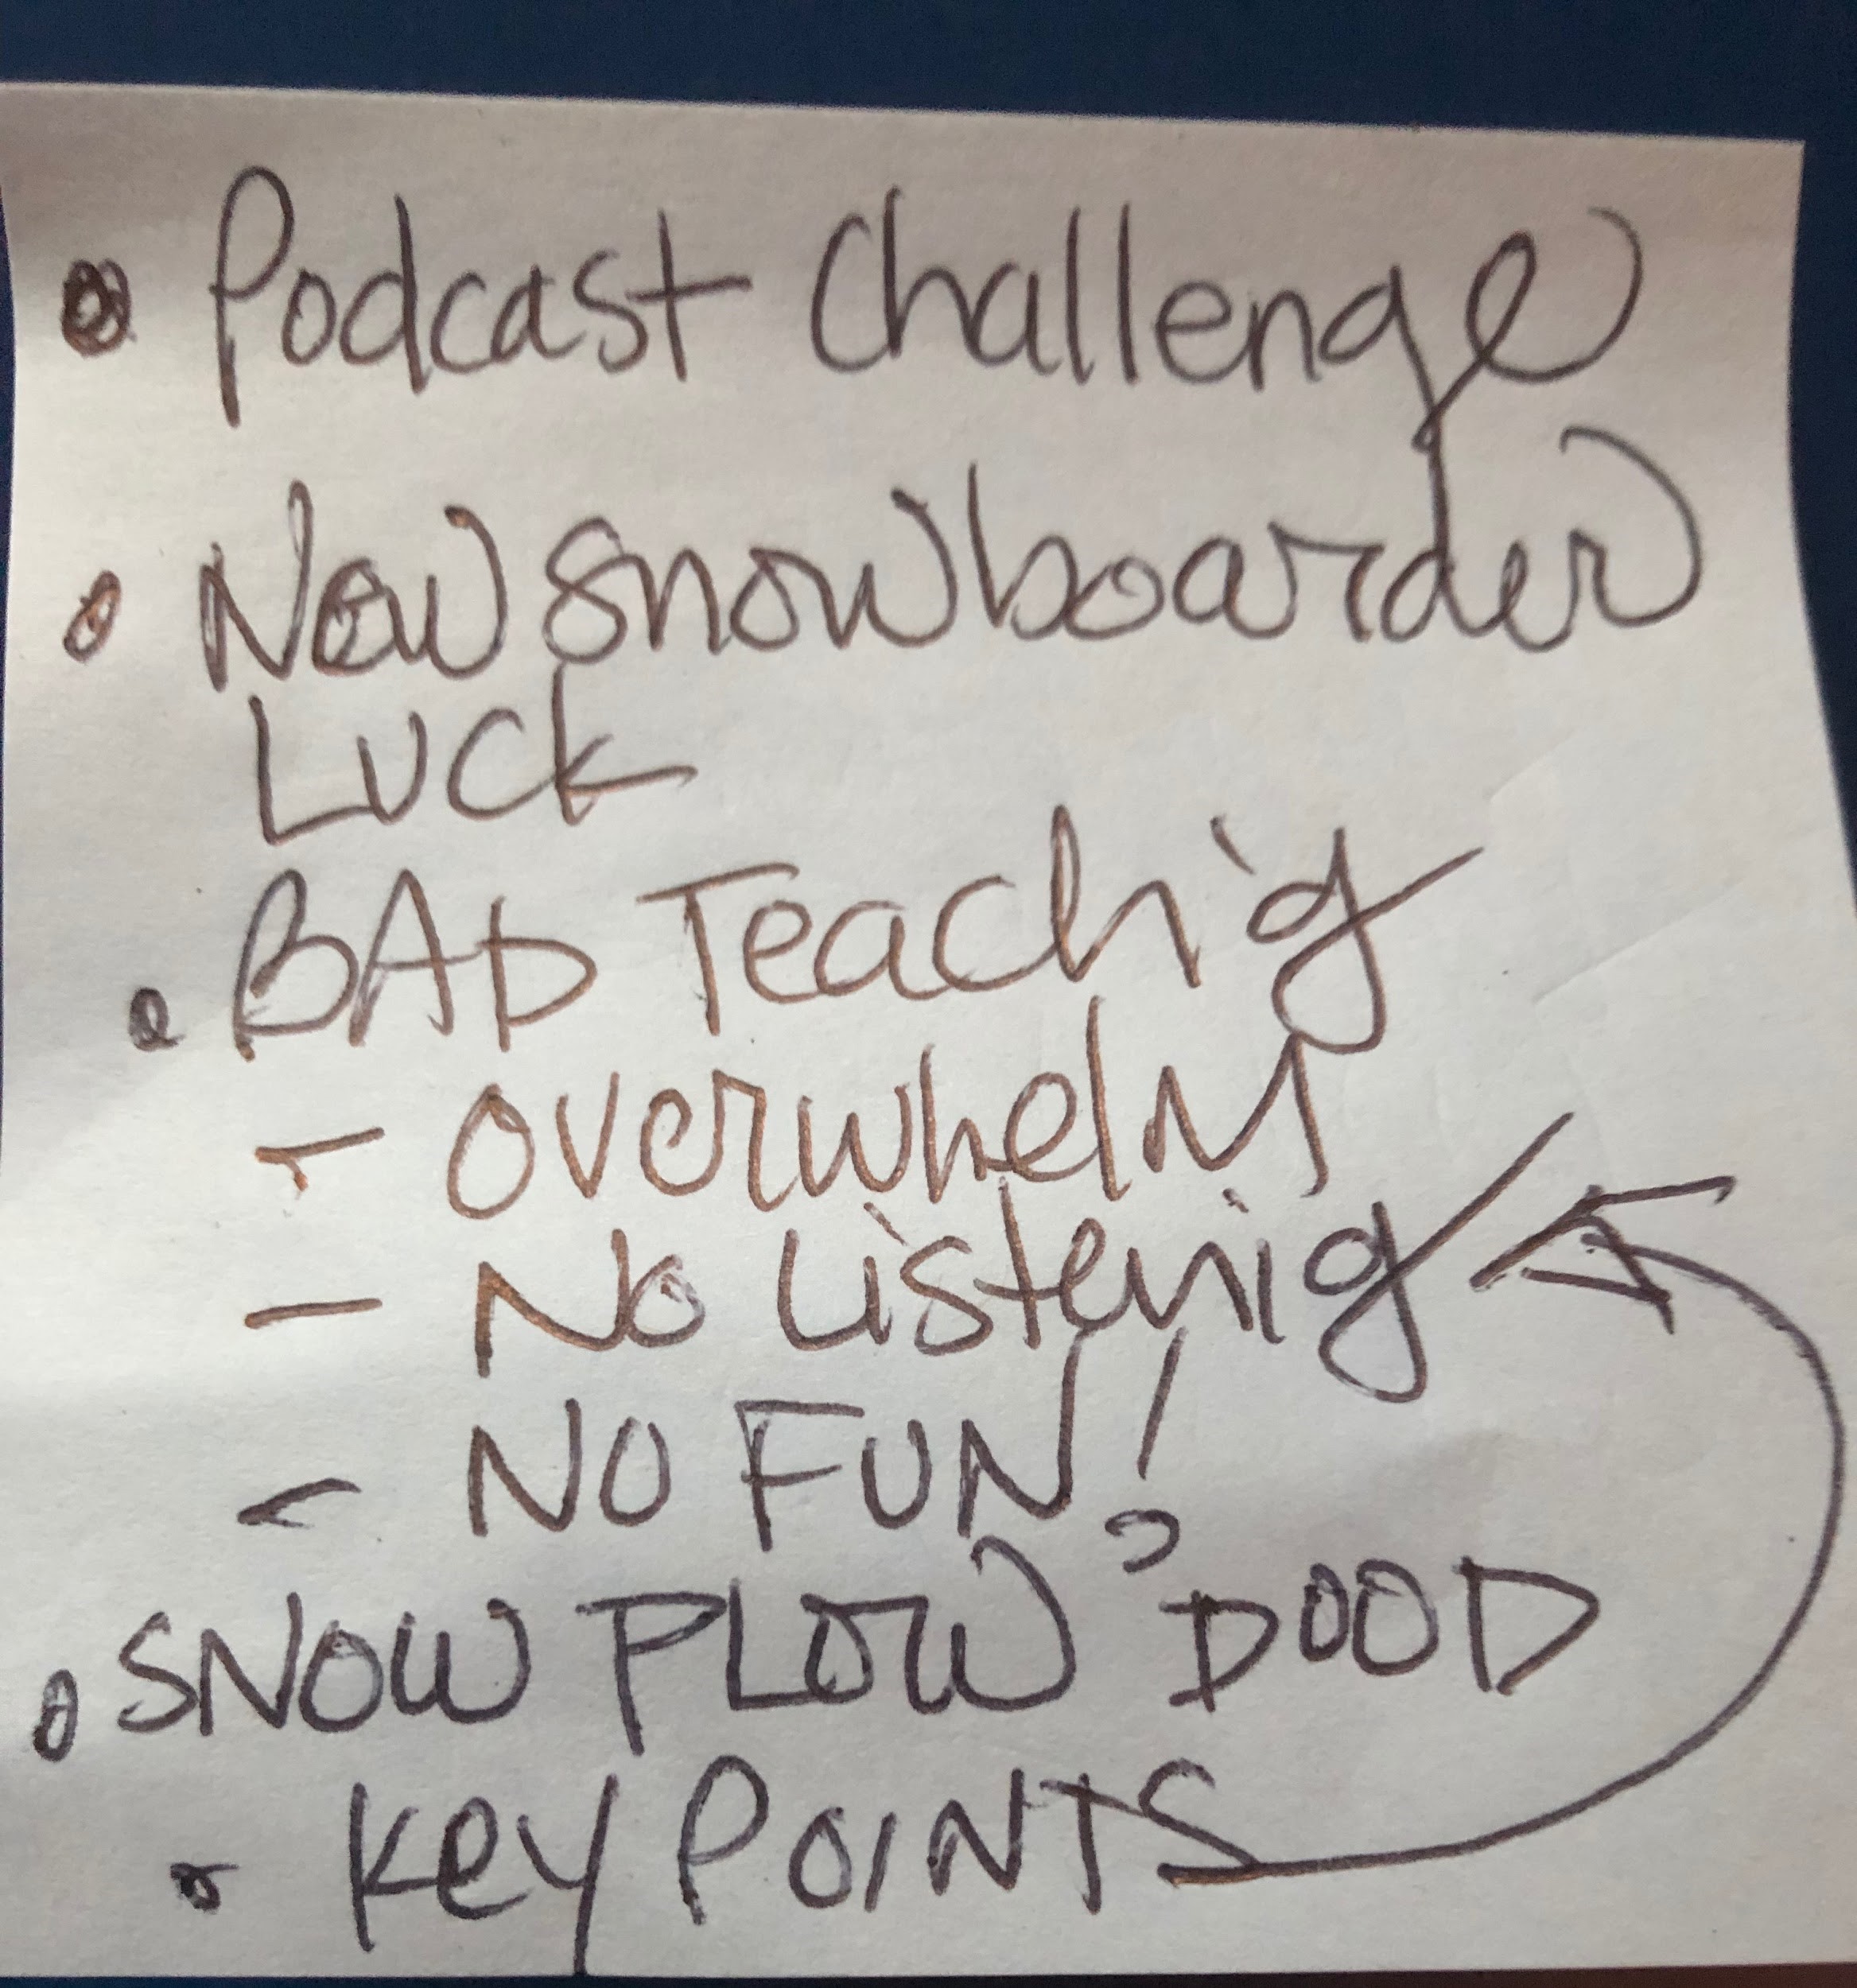 • Podcast Challenge
• New snowboarder
Luck
• BAD Teachig
- Overwhelm
- No Listenig
- NO FUN!
• SNOW PLOW DOOD
• Key POINTS